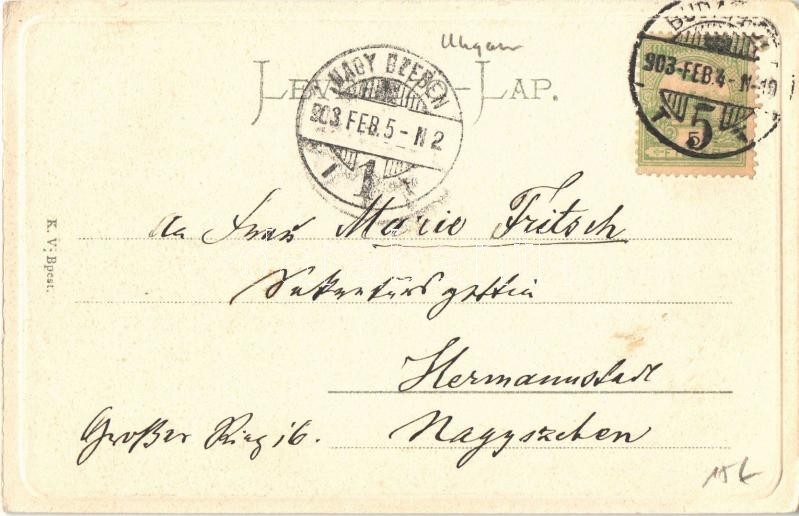 Ungarn
LEVELEZŐ-LAP.
NAGY SZEBEN
903 FEB. 5 - N 2
1
903 - FEB. 4 - N
5
5
K. V; Bpest.
An Frau Marie Fritsch
Sekretärsgattin
Hermannstadt
Großer Ring 16.
Nagyszeben